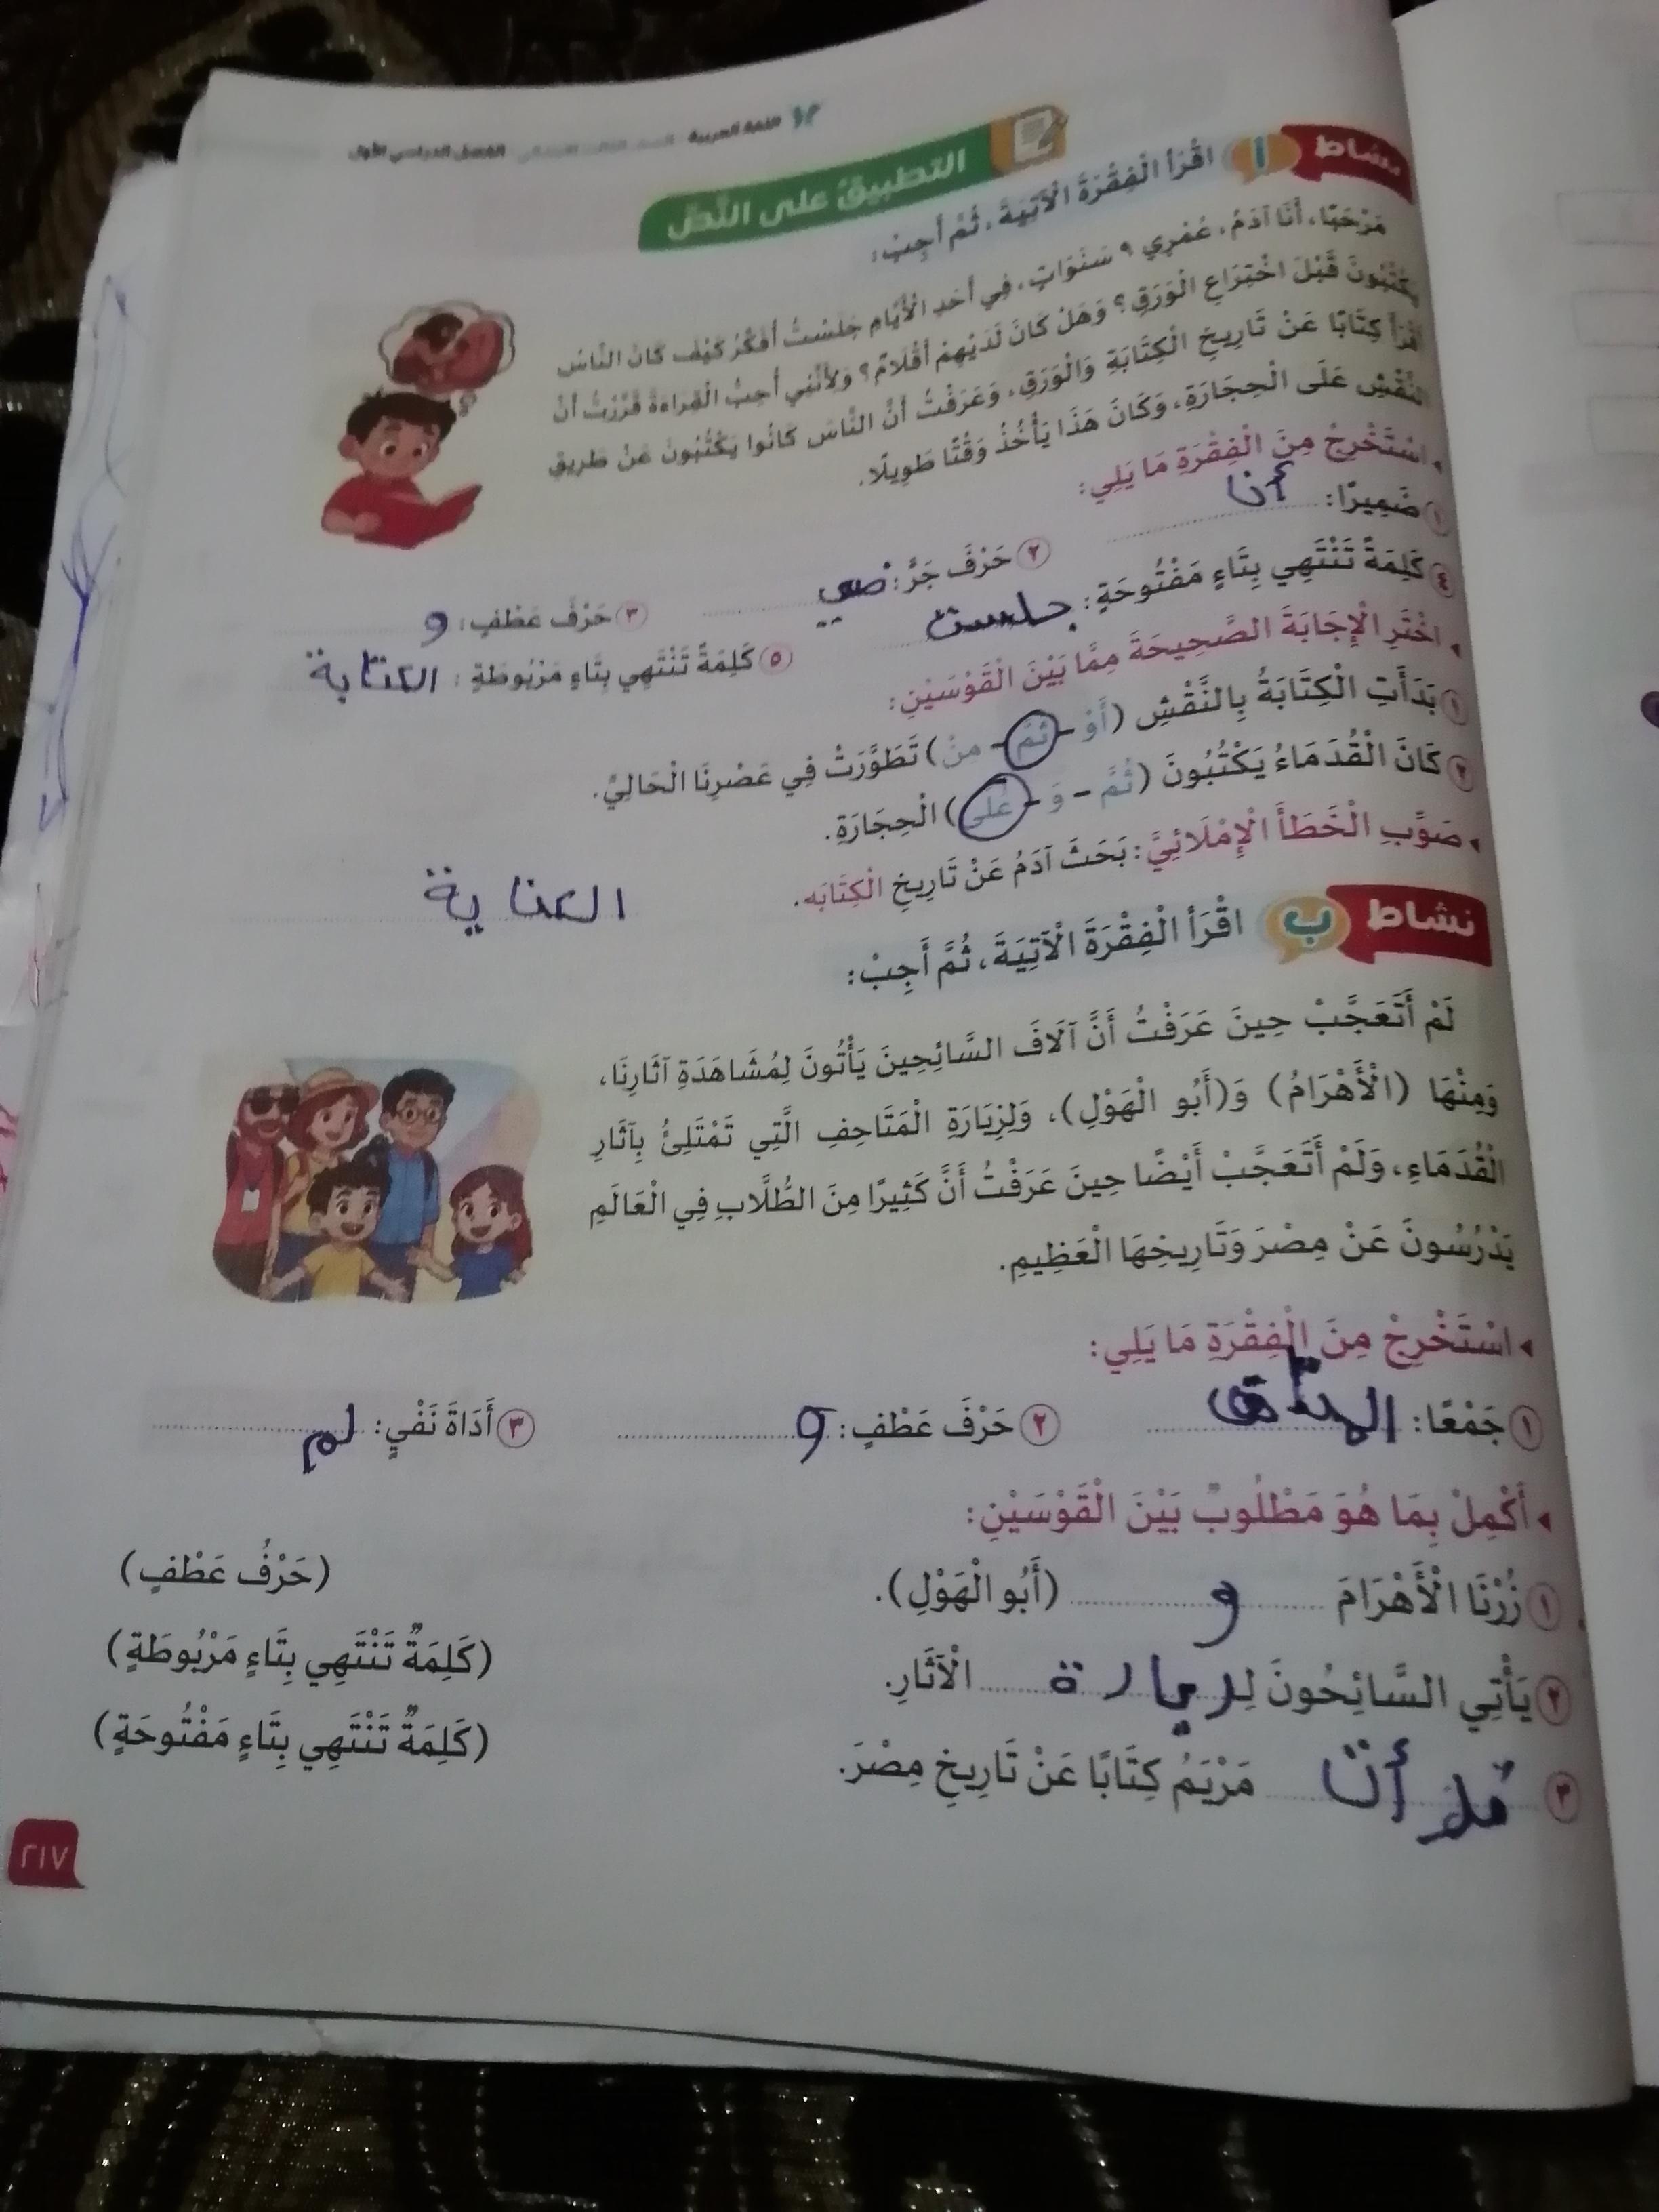 اللغة العربية - الصف الثالث الابتدائي - الفصل الدراسي الأول
التطبيق على النَّصِّ
نشاط أ اقْرَأِ الْفِقْرَةَ الْآتِيَةَ، ثُمَّ أَجِبْ:
مَرْحَبًا، أَنَا آدَمُ، عُمْرِي ٩ سَنَوَاتٍ، فِي أَحَدِ الْأَيَّامِ جَلَسْتُ أُفَكِّرُ كَيْفَ كَانَ النَّاسُ
يَكْتُبُونَ قَبْلَ اخْتِرَاعِ الْوَرَقِ؟ وَهَلْ كَانَ لَدَيْهِمْ أَقْلَامٌ؟ وَلِأَنَّنِي أُحِبُّ الْقِرَاءَةَ قَرَّرْتُ أَنْ
أَقْرَأَ كِتَابًا عَنْ تَارِيخِ الْكِتَابَةِ وَالْوَرَقِ، وَعَرَفْتُ أَنَّ النَّاسَ كَانُوا يَكْتُبُونَ عَنْ طَرِيقِ
النَّقْشِ عَلَى الْحِجَارَةِ، وَكَانَ هَذَا يَأْخُذُ وَقْتًا طَوِيلًا.
اسْتَخْرِجْ مِنَ الْفِقْرَةِ مَا يَلِي:
١ ضَمِيرًا: أنا ٢ حَرْفَ جَرٍّ: في ٣ حَرْفَ عَطْفٍ: و
٤ كَلِمَةً تَنْتَهِي بِتَاءٍ مَفْتُوحَةٍ: جلست ٥ كَلِمَةً تَنْتَهِي بِتَاءٍ مَرْبُوطَةٍ: الكتابة
اخْتَرِ الْإِجَابَةَ الصَّحِيحَةَ مِمَّا بَيْنَ الْقَوْسَيْنِ:
١ بَدَأَتِ الْكِتَابَةُ بِالنَّقْشِ (أَوْ - ثُمَّ - مِنْ) تَطَوَّرَتْ فِي عَصْرِنَا الْحَالِيِّ.
٢ كَانَ الْقُدَمَاءُ يَكْتُبُونَ (ثُمَّ - وَ - عَلَى) الْحِجَارَةِ.
صَوِّبِ الْخَطَأَ الْإِمْلَائِيَّ: بَحَثَ آدَمُ عَنْ تَارِيخِ الْكِتَابَه. الكتابة
نشاط ب اقْرَأِ الْفِقْرَةَ الْآتِيَةَ، ثُمَّ أَجِبْ:
لَمْ أَتَعَجَّبْ حِينَ عَرَفْتُ أَنَّ آلَافَ السَّائِحِينَ يَأْتُونَ لِمُشَاهَدَةِ آثَارِنَا،
وَمِنْهَا (الْأَهْرَامُ) وَ(أَبُو الْهَوْلِ)، وَلِزِيَارَةِ الْمَتَاحِفِ الَّتِي تَمْتَلِئُ بِآثَارِ
الْقُدَمَاءِ، وَلَمْ أَتَعَجَّبْ أَيْضًا حِينَ عَرَفْتُ أَنَّ كَثِيرًا مِنَ الطُّلَّابِ فِي الْعَالَمِ
يَدْرُسُونَ عَنْ مِصْرَ وَتَارِيخِهَا الْعَظِيمِ.
اسْتَخْرِجْ مِنَ الْفِقْرَةِ مَا يَلِي:
١ جَمْعًا: ٢ حَرْفَ عَطْفٍ: و ٣ أَدَاةَ نَفْيٍ: لم
أَكْمِلْ بِمَا هُوَ مَطْلُوبٌ بَيْنَ الْقَوْسَيْنِ:
١ زُرْنَا الْأَهْرَامَ و (أَبُو الْهَوْلِ). (حَرْفُ عَطْفٍ)
٢ يَأْتِي السَّائِحُونَ لِزيارة الْآثَارِ. (كَلِمَةٌ تَنْتَهِي بِتَاءٍ مَرْبُوطَةٍ)
٣ مَرْيَمُ كِتَابًا عَنْ تَارِيخِ مِصْرَ. (كَلِمَةٌ تَنْتَهِي بِتَاءٍ مَفْتُوحَةٍ)
٢١٧